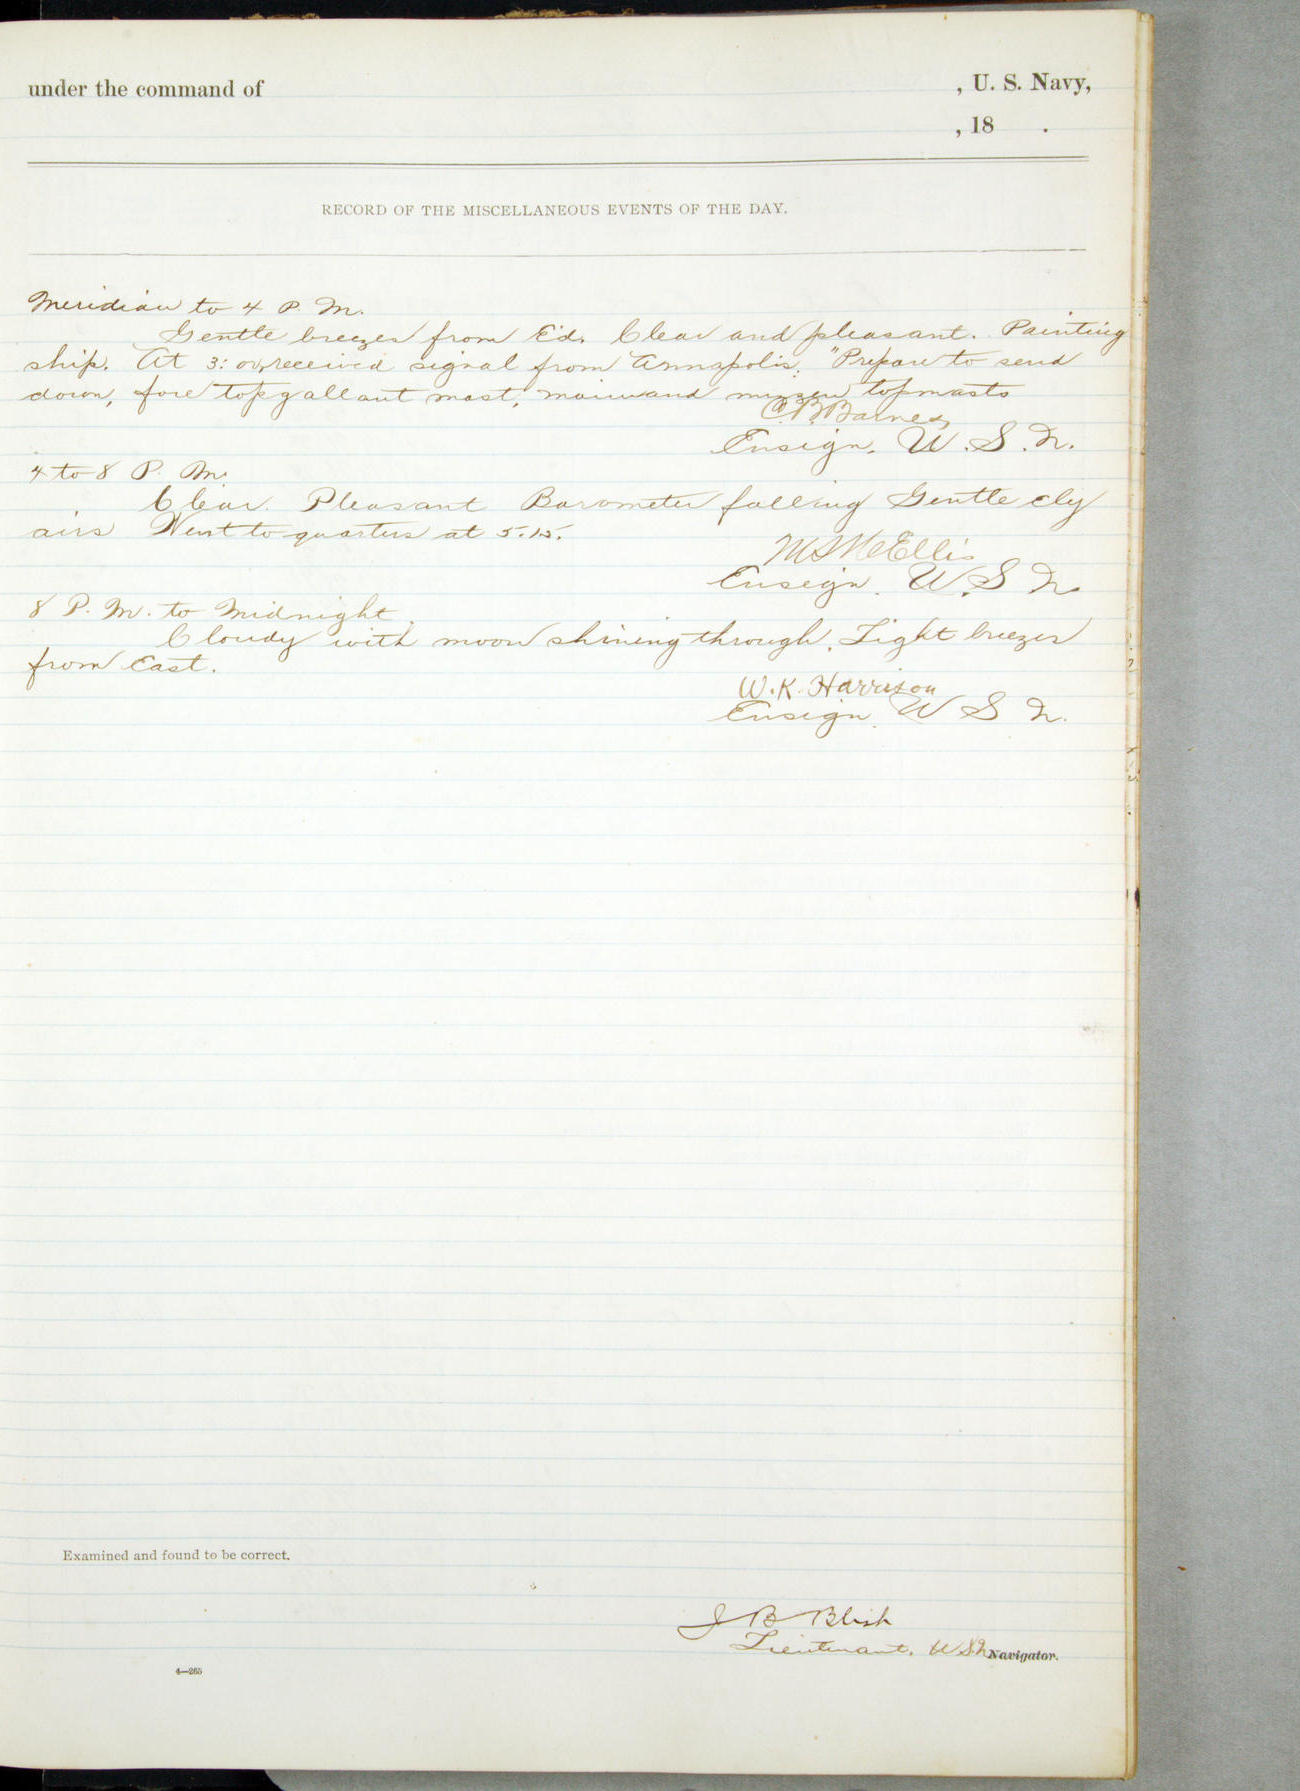 under the command of , U. S. Navy,
, 18 .
RECORD OF THE MISCELLANEOUS EVENTS OF THE DAY.
Meridian to 4 P. M.
Gentle breezes from E'd. Clear and pleasant. Painting
ship. At 3: received signal from Annapolis: "Prepare to send
down, fore topgallant mast, main and mizzen topmasts
C. B. Barnes
Ensign, U. S. N.
4 to 8 P. M.
Clear. Pleasant Barometer falling Gentle ely
airs Went to quarters at 5.15.
Ensign, U. S. N.
8 P. M. to Midnight
Cloudy with moon shining through. Light breezes
from East.
W. K. Harrison
Ensign U S N.
Examined and found to be correct.
J B Blish
Lieutenant, U.S.N Navigator.
4—265